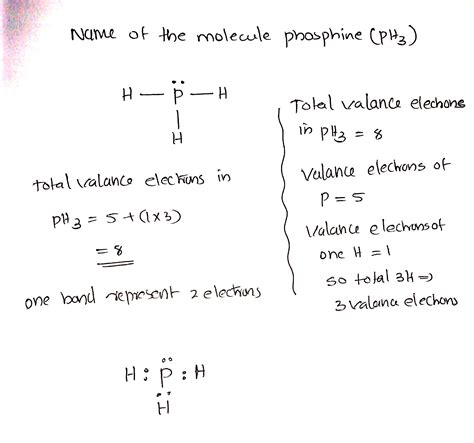 Name of the molecule phosphine (PH3)
H — P — H
H
total valance electrons in
PH3 = 5 + (1x3)
= 8
one bond represent 2 electrons
Total valance electrons
in PH3 = 8
Valance electrons of
P = 5
Valance electrons of
one H = 1
so total 3H =>
3 valance electrons
H : P : H
H